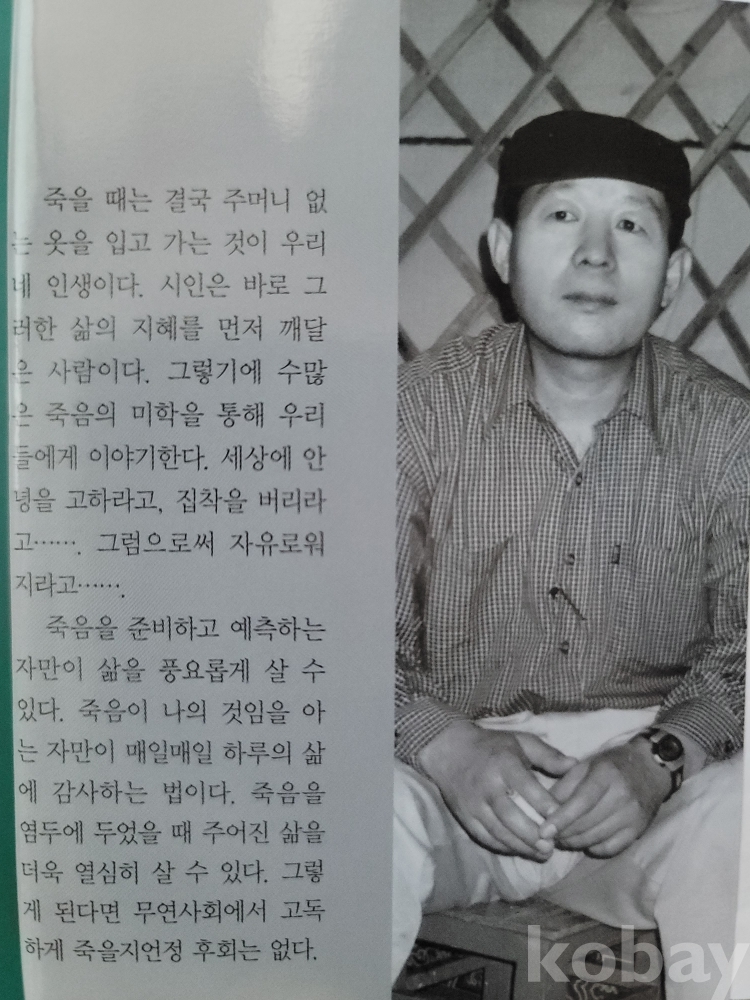 죽을 때는 결국 주머니 없
는 옷을 입고 가는 것이 우리
네 인생이다. 시인은 바로 그
러한 삶의 지혜를 먼저 깨달
은 사람이다. 그렇기에 수많
은 죽음의 미학을 통해 우리
들에게 이야기한다. 세상에 안
녕을 고하라고, 집착을 버리라
고……. 그럼으로써 자유로워
지라고…….
죽음을 준비하고 예측하는
자만이 삶을 풍요롭게 살 수
있다. 죽음이 나의 것임을 아
는 자만이 매일매일 하루의 삶
에 감사하는 법이다. 죽음을
염두에 두었을 때 주어진 삶을
더욱 열심히 살 수 있다. 그렇
게 된다면 무연사회에서 고독
하게 죽을지언정 후회는 없다.
kobay